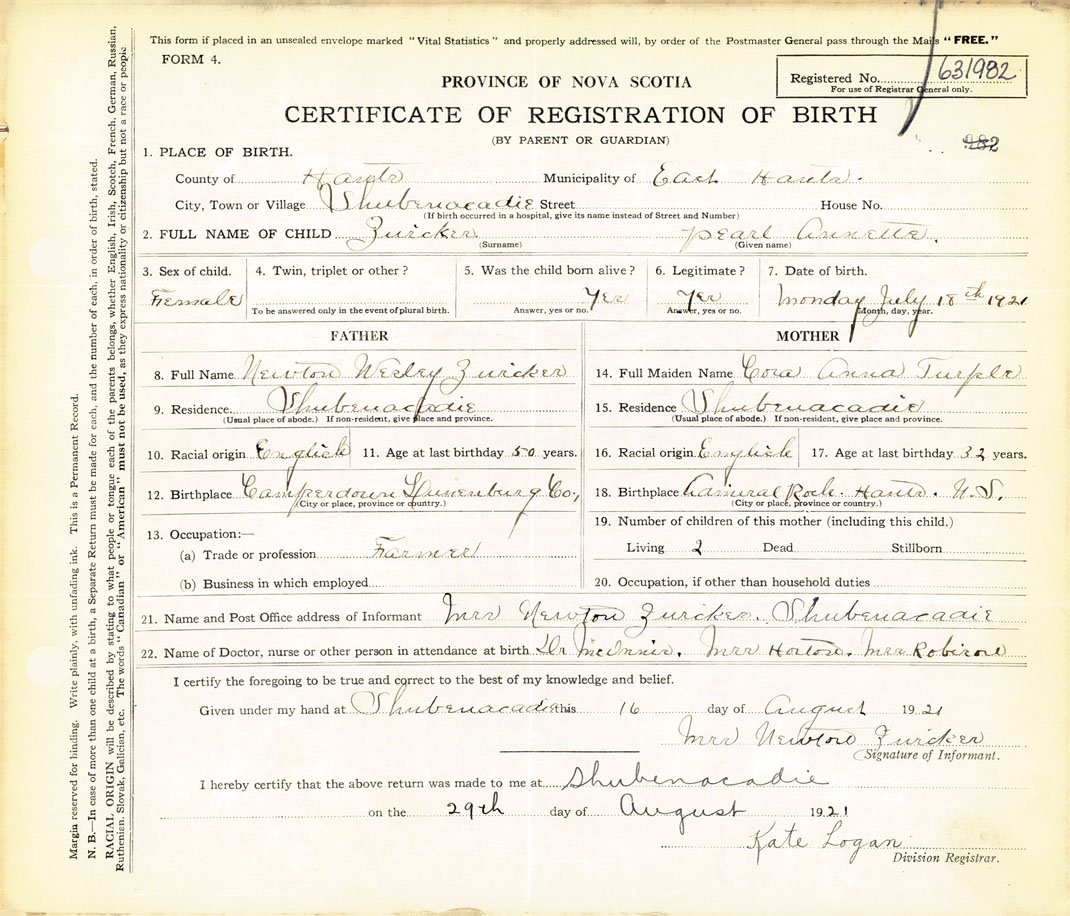 This form if placed in an unsealed envelope marked "Vital Statistics" and properly addressed will, by order of the Postmaster General pass through the Mails "FREE."
FORM 4.
Registered No. 631982
For use of Registrar General only.
PROVINCE OF NOVA SCOTIA
CERTIFICATE OF REGISTRATION OF BIRTH
(BY PARENT OR GUARDIAN)
982
1. PLACE OF BIRTH.
County of Hants Municipality of East Hants.
City, Town or Village Shubenacadie Street House No.
(If birth occurred in a hospital, give its name instead of Street and Number)
2. FULL NAME OF CHILD Zwicker Pearl Annette.
(Surname) (Given name)
3. Sex of child. 4. Twin, triplet or other? 5. Was the child born alive? 6. Legitimate? 7. Date of birth.
Female Yes Yes Monday July 18th 1921
To be answered only in the event of plural birth. Answer, yes or no. Answer, yes or no. Month, day, year.
FATHER MOTHER
8. Full Name Newton Wesley Zwicker
9. Residence Shubenacadie
(Usual place of abode.) If non-resident, give place and province.
10. Racial origin English 11. Age at last birthday 50 years.
12. Birthplace Camperdown Lunenburg Co,
(City or place, province or country.)
13. Occupation:—
(a) Trade or profession Farmer
(b) Business in which employed
14. Full Maiden Name Cora Anna Turple
15. Residence Shubenacadie
(Usual place of abode.) If non-resident, give place and province.
16. Racial origin English 17. Age at last birthday 32 years.
18. Birthplace Admiral Rock. Hants. N.S.
(City or place, province or country.)
19. Number of children of this mother (including this child.)
Living 2 Dead Stillborn
20. Occupation, if other than household duties
21. Name and Post Office address of Informant Mrs Newton Zwicker. Shubenacadie
22. Name of Doctor, nurse or other person in attendance at birth Dr McInnis. Mrs Horton. Mrs Robison
I certify the foregoing to be true and correct to the best of my knowledge and belief.
Given under my hand at Shubenacadie this 16 day of August 1921
Mrs Newton Zwicker
Signature of Informant.
I hereby certify that the above return was made to me at Shubenacadie
on the 29th day of August 1921
Kate Logan
Division Registrar.
Margin reserved for binding. Write plainly, with unfading ink. This is a Permanent Record.
N. B.—In case of more than one child at a birth, a Separate Return must be made for each, and the number of each, in order of birth, stated.
RACIAL ORIGIN will be described by stating to what people or tongue each of the parents belongs, whether English, Irish, Scotch, French, German, Russian,
Ruthenian, Slovak, Galician, etc. The words "Canadian" or "American" must not be used, as they express nationality or citizenship but not a race or people